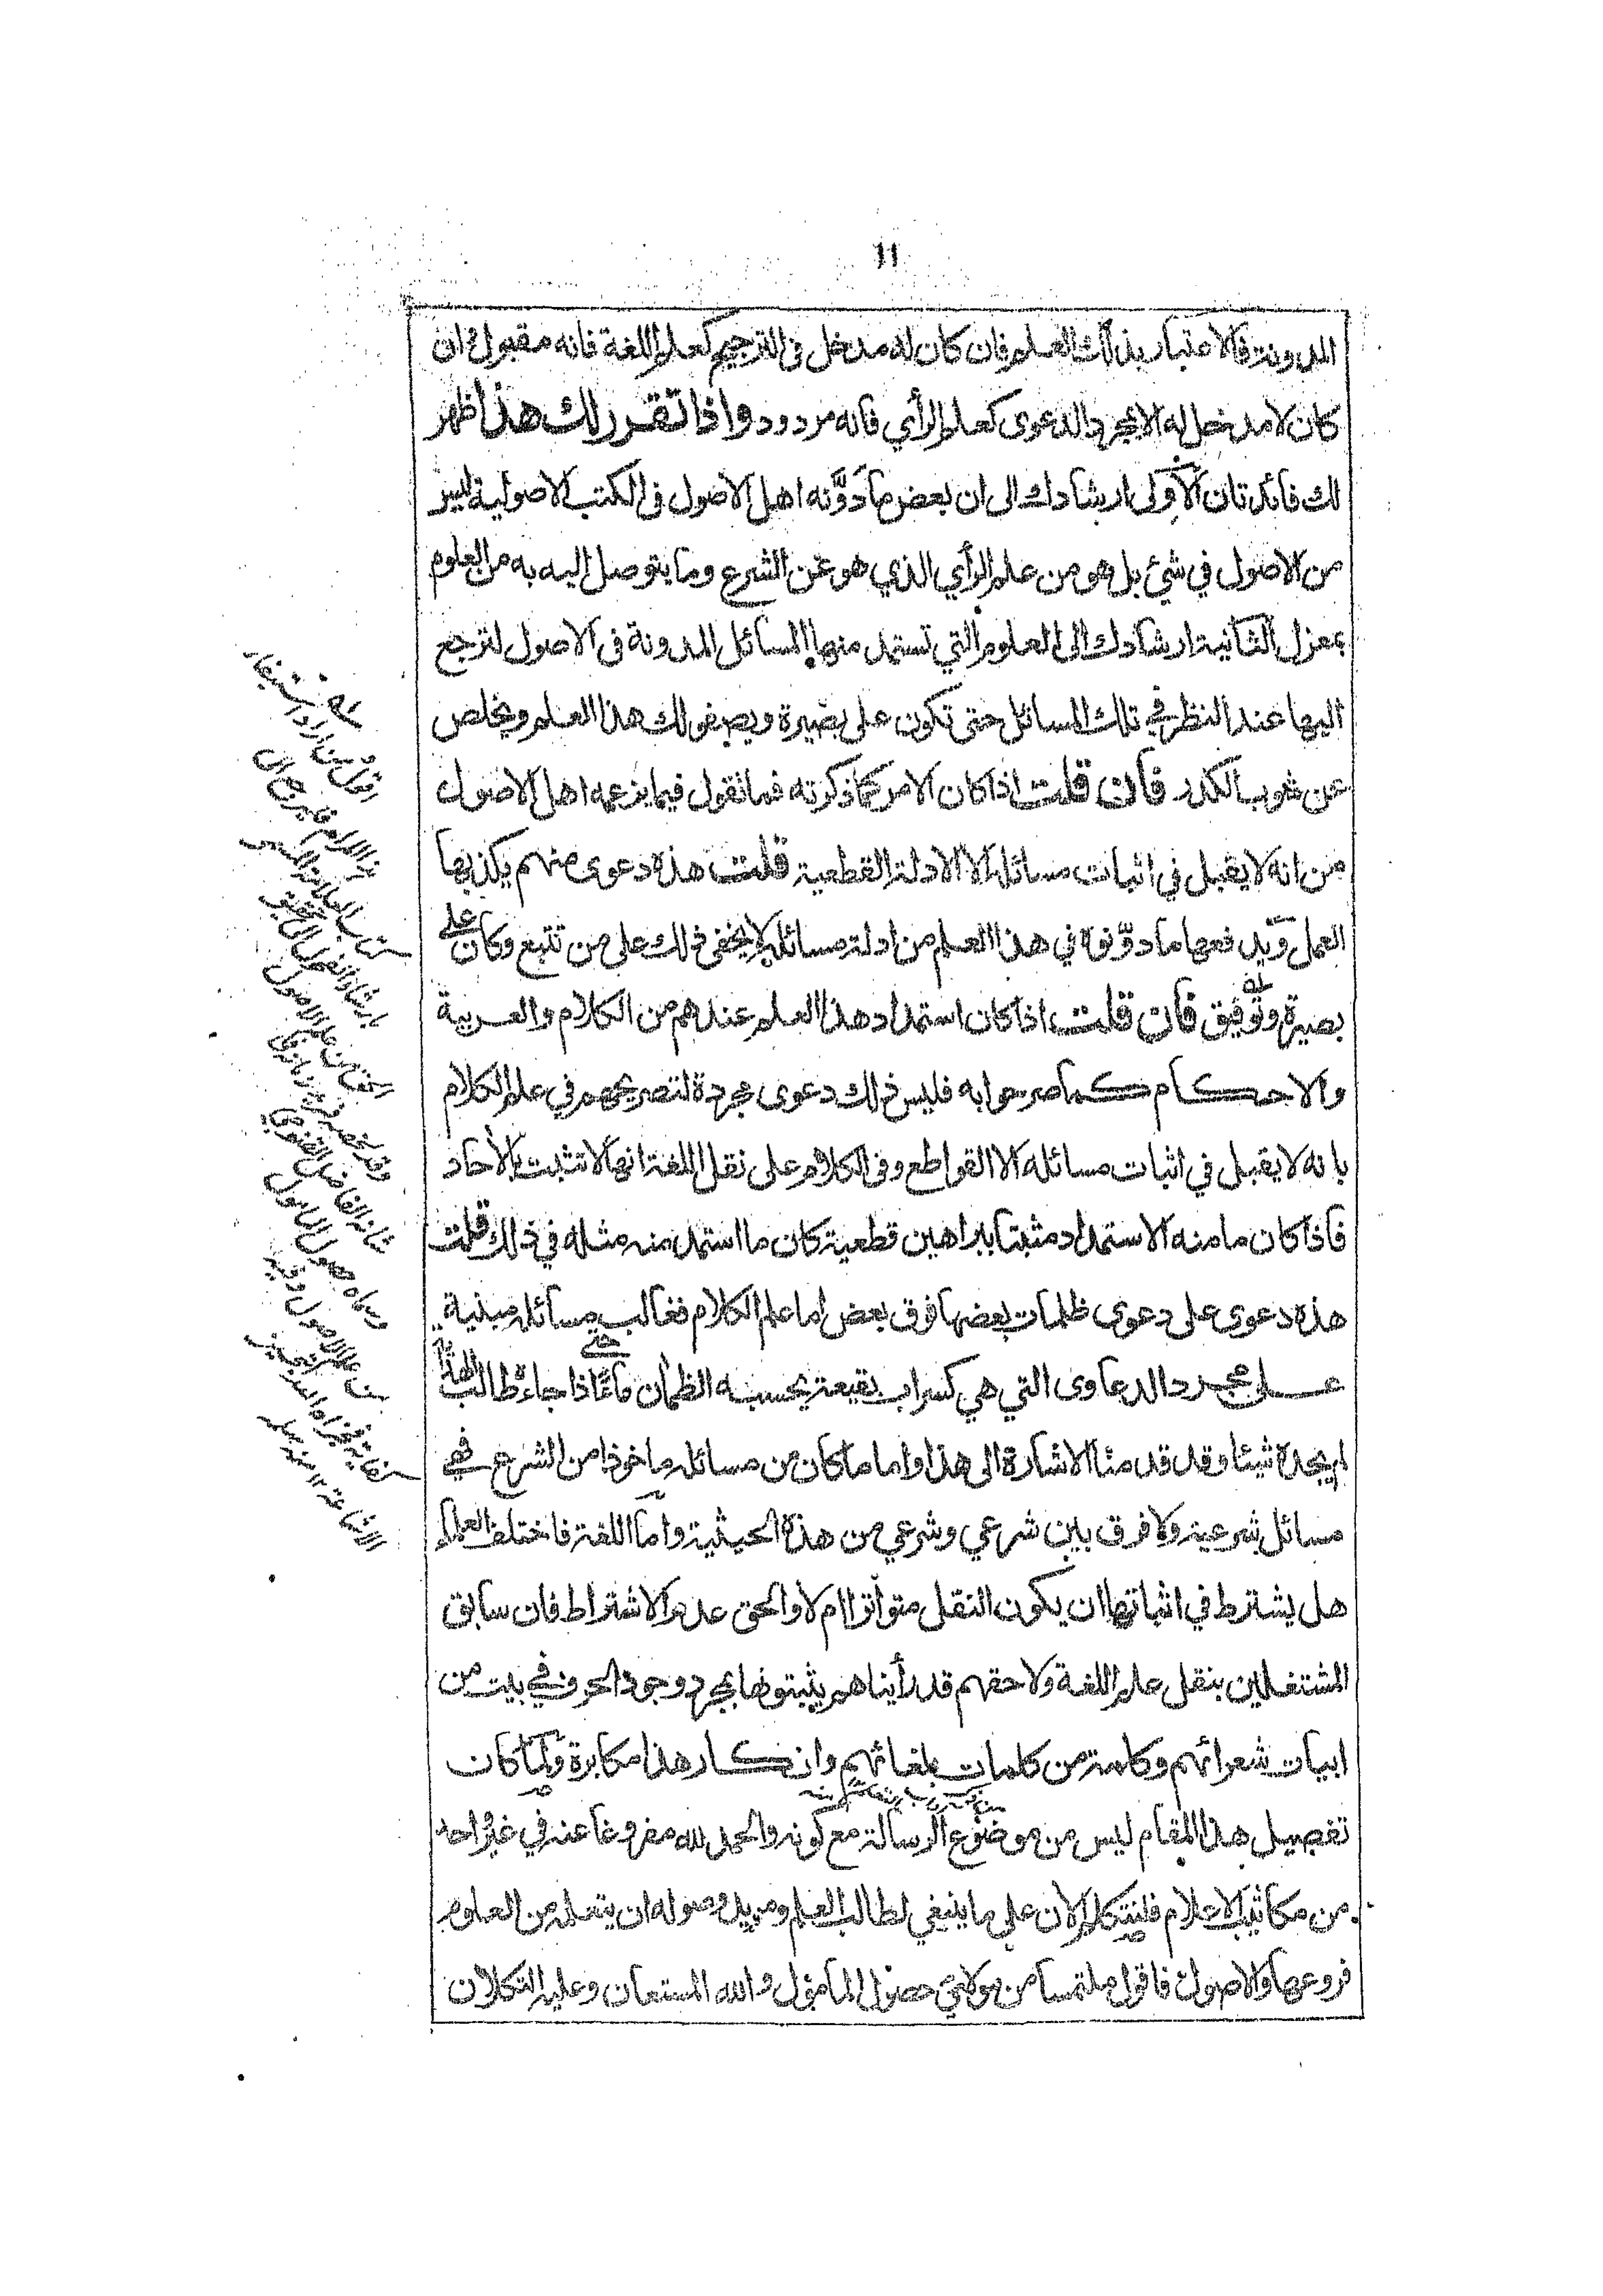 11
المدونة فالاعتبار بذلك العلم فان كان له مدخل فى الترجيح كعلم اللغة فانه مقبول وان
كان لا مدخل له الا بمجرد الدعوى كعلم الرأي فانه مردود واذا تقرر لك هذا ظهر
لك فائدتان الاولى ارشادك الى ان بعض ما دوَّنه اهل الاصول فى الكتب الاصولية ليس
من الاصول في شئ بل هو من علم الرأي الذي هو عن الشرع وما يتوصل اليه به من العلوم
بمعزل الثانية ارشادك الى العلوم التي تستمد منها المسائل المدونة فى الاصول لترجع
اليها عند النظر في تلك المسائل حتى تكون على بصيرة ويصفو لك هذا العلم ويخلص
عن شوب الكدر فان قلت اذا كان الامر كما ذكرته فما نقول فيما يزعمه اهل الاصول
من انه لا يقبل في اثبات مسائله الا الادلة القطعية قلت هذه دعوى منهم يكذبها
العمل ويدفعها ما دوّنوه في هذا العلم من ادلة مسائله لا يخفى ذلك على من تتبع وكان على
بصيرة وتوفيق فان قلت اذا كان استمداد هذا العلم عندهم من الكلام والعربية
والاحكام كما صرحوا به فليس ذلك دعوى مجردة لتصريحهم في علم الكلام
بانه لا يقبل في اثبات مسائله الا القواطع وفى الكلام على نقل اللغة انها لا تثبت بالآحاد
فاذا كان ما منه الاستمداد مثبتا ببراهين قطعية كان ما استمد منه مثله في ذلك قلت
هذه دعوى على دعوى ظلمات بعضها فوق بعض اما علم الكلام فغالب مسائله مبنية
على مجرد الدعاوى التي هي كسراب بقيعة يحسبه الظمآن ماءً حتى اذا جاءه طالب الهدى
لم يجده شيئا وقد قدمنا الاشارة الى هذا واما ما كان من مسائله ماخوذا من الشرع فهي
مسائل شرعية ولا فرق بين شرعي وشرعي من هذه الحيثية وأما اللغة فاختلف العلماء
هل يشترط في اثباتها ان يكون النقل متواترا ام لا والحق عدم الاشتراط فان سابق
المشتغلين بنقل علم اللغة ولاحقهم قد رأيناهم يثبتونها بمجرد وجود الحرف في بيت من
ابيات شعرائهم وكلمة من كلمات بلغائهم وانكار هذا مكابرة ولما كان
تفصيل هذا المقام ليس من موضوع الرسالة مع كونه والحمد لله مفروغا عنه في غير واحد
من مكاتيب الاعلام فلنتكلم الان على ما ينبغي لطالب العلم ومريد وصوله ان يتعلمه من العلوم
فروعها والاصول فاقول ملتمسا من مولائي حصول المامول والله المستعان وعليه التكلان